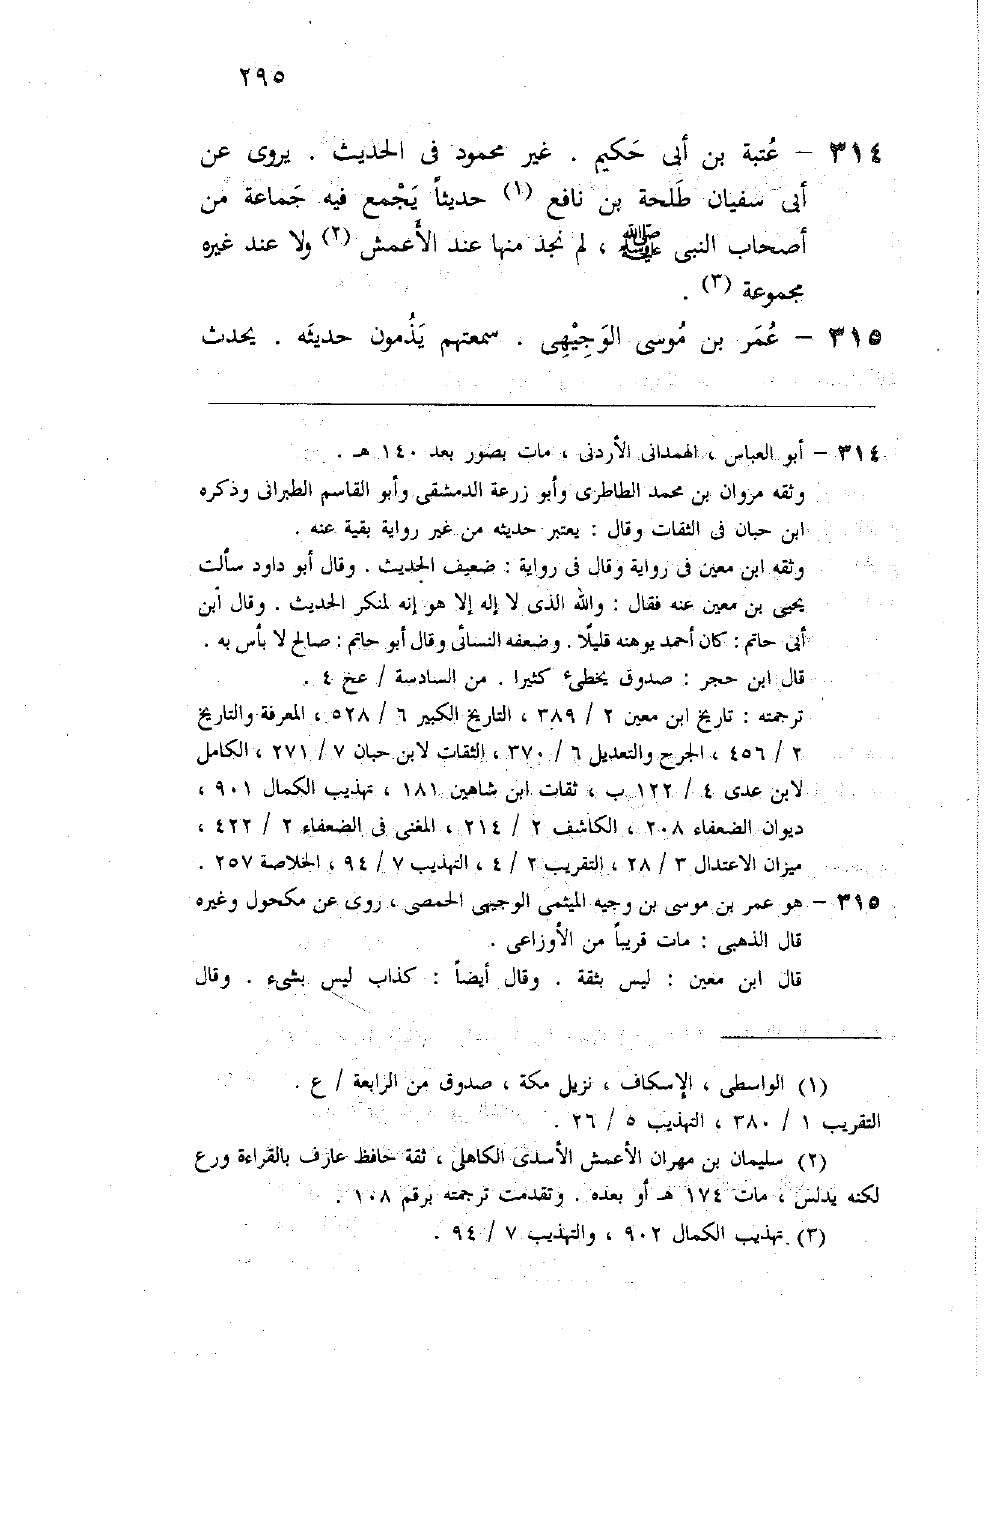 ٢٩٥
٣١٤ – عُتبة بن أبى حَكيم . غير محمود فى الحديث . يروى عن
أبى سفيان طَلحة بن نافع (١) حديثاً يَجْمع فيه جَماعة من
أصحاب النبى ﷺ ، لم نجد منها عند الأَعمش (٢) ولا عند غيره
مجموعة (٣) .
٣١٥ – عُمَر بن مُوسى الوَجِيْهِى . سمعتهم يَذُمون حديثَه . يحدث
٣١٤ – أبو العباس ، الهمدانى الأردنى ، مات بصور بعد ١٤٠ هـ .
وثقه مروان بن محمد الطاطرى وأبو زرعة الدمشقى وأبو القاسم الطبرانى وذكره
ابن حبان فى الثقات وقال : يعتبر حديثه من غير رواية بقية عنه .
وثقه ابن معين فى رواية وقال فى رواية : ضعيف الحديث . وقال أبو داود سألت
يحيى بن معين عنه فقال : والله الذى لا إله إلا هو إنه لمنكر الحديث . وقال أبن
أبى حاتم : كان أحمد يوهنه قليلًا . وضعفه النسائى وقال أبو حاتم : صالح لا بأس به .
قال ابن حجر : صدوق يخطىء كثيرا . من السادسة / عخ ٤ .
ترجمته : تاريخ ابن معين ٢ / ٣٨٩ ، التاريخ الكبير ٦ / ٥٢٨ ، المعرفة والتاريخ
٢ / ٤٥٦ ، الجرح والتعديل ٦ / ٣٧٠ ، الثقات لابن حبان ٧ / ٢٧١ ، الكامل
لابن عدى ٤ / ١٢٢ ب ، ثقات ابن شاهين ١٨١ ، تهذيب الكمال ٩٠١ ،
ديوان الضعفاء ٢٠٨ ، الكاشف ٢ / ٢١٤ ، المغنى فى الضعفاء ٢ / ٤٢٢ ،
ميزان الاعتدال ٣ / ٢٨ ، التقريب ٢ / ٤ ، التهذيب ٧ / ٩٤ ، الخلاصة ٢٥٧ .
٣١٥ – هو عمر بن موسى بن وجيه الميثمى الوجيهى الحمصى ، روى عن مكحول وغيره
قال الذهبى : مات قريباً من الأوزاعى .
قال ابن معين : ليس بثقة . وقال أيضاً : كذاب ليس بشىء . وقال
(١) الواسطى ، الإسكاف ، نزيل مكة ، صدوق من الرابعة / ع .
التقريب ١ / ٣٨٠ ، التهذيب ٥ / ٢٦ .
(٢) سليمان بن مهران الأعمش الأسدى الكاهلى ، ثقة حافظ عارف بالقراءة ورع
لكنه يدلس ، مات ١٧٤ هـ أو بعده . وتقدمت ترجمته برقم ١٠٨ .
(٣) تهذيب الكمال ٩٠٢ ، والتهذيب ٧ / ٩٤ .